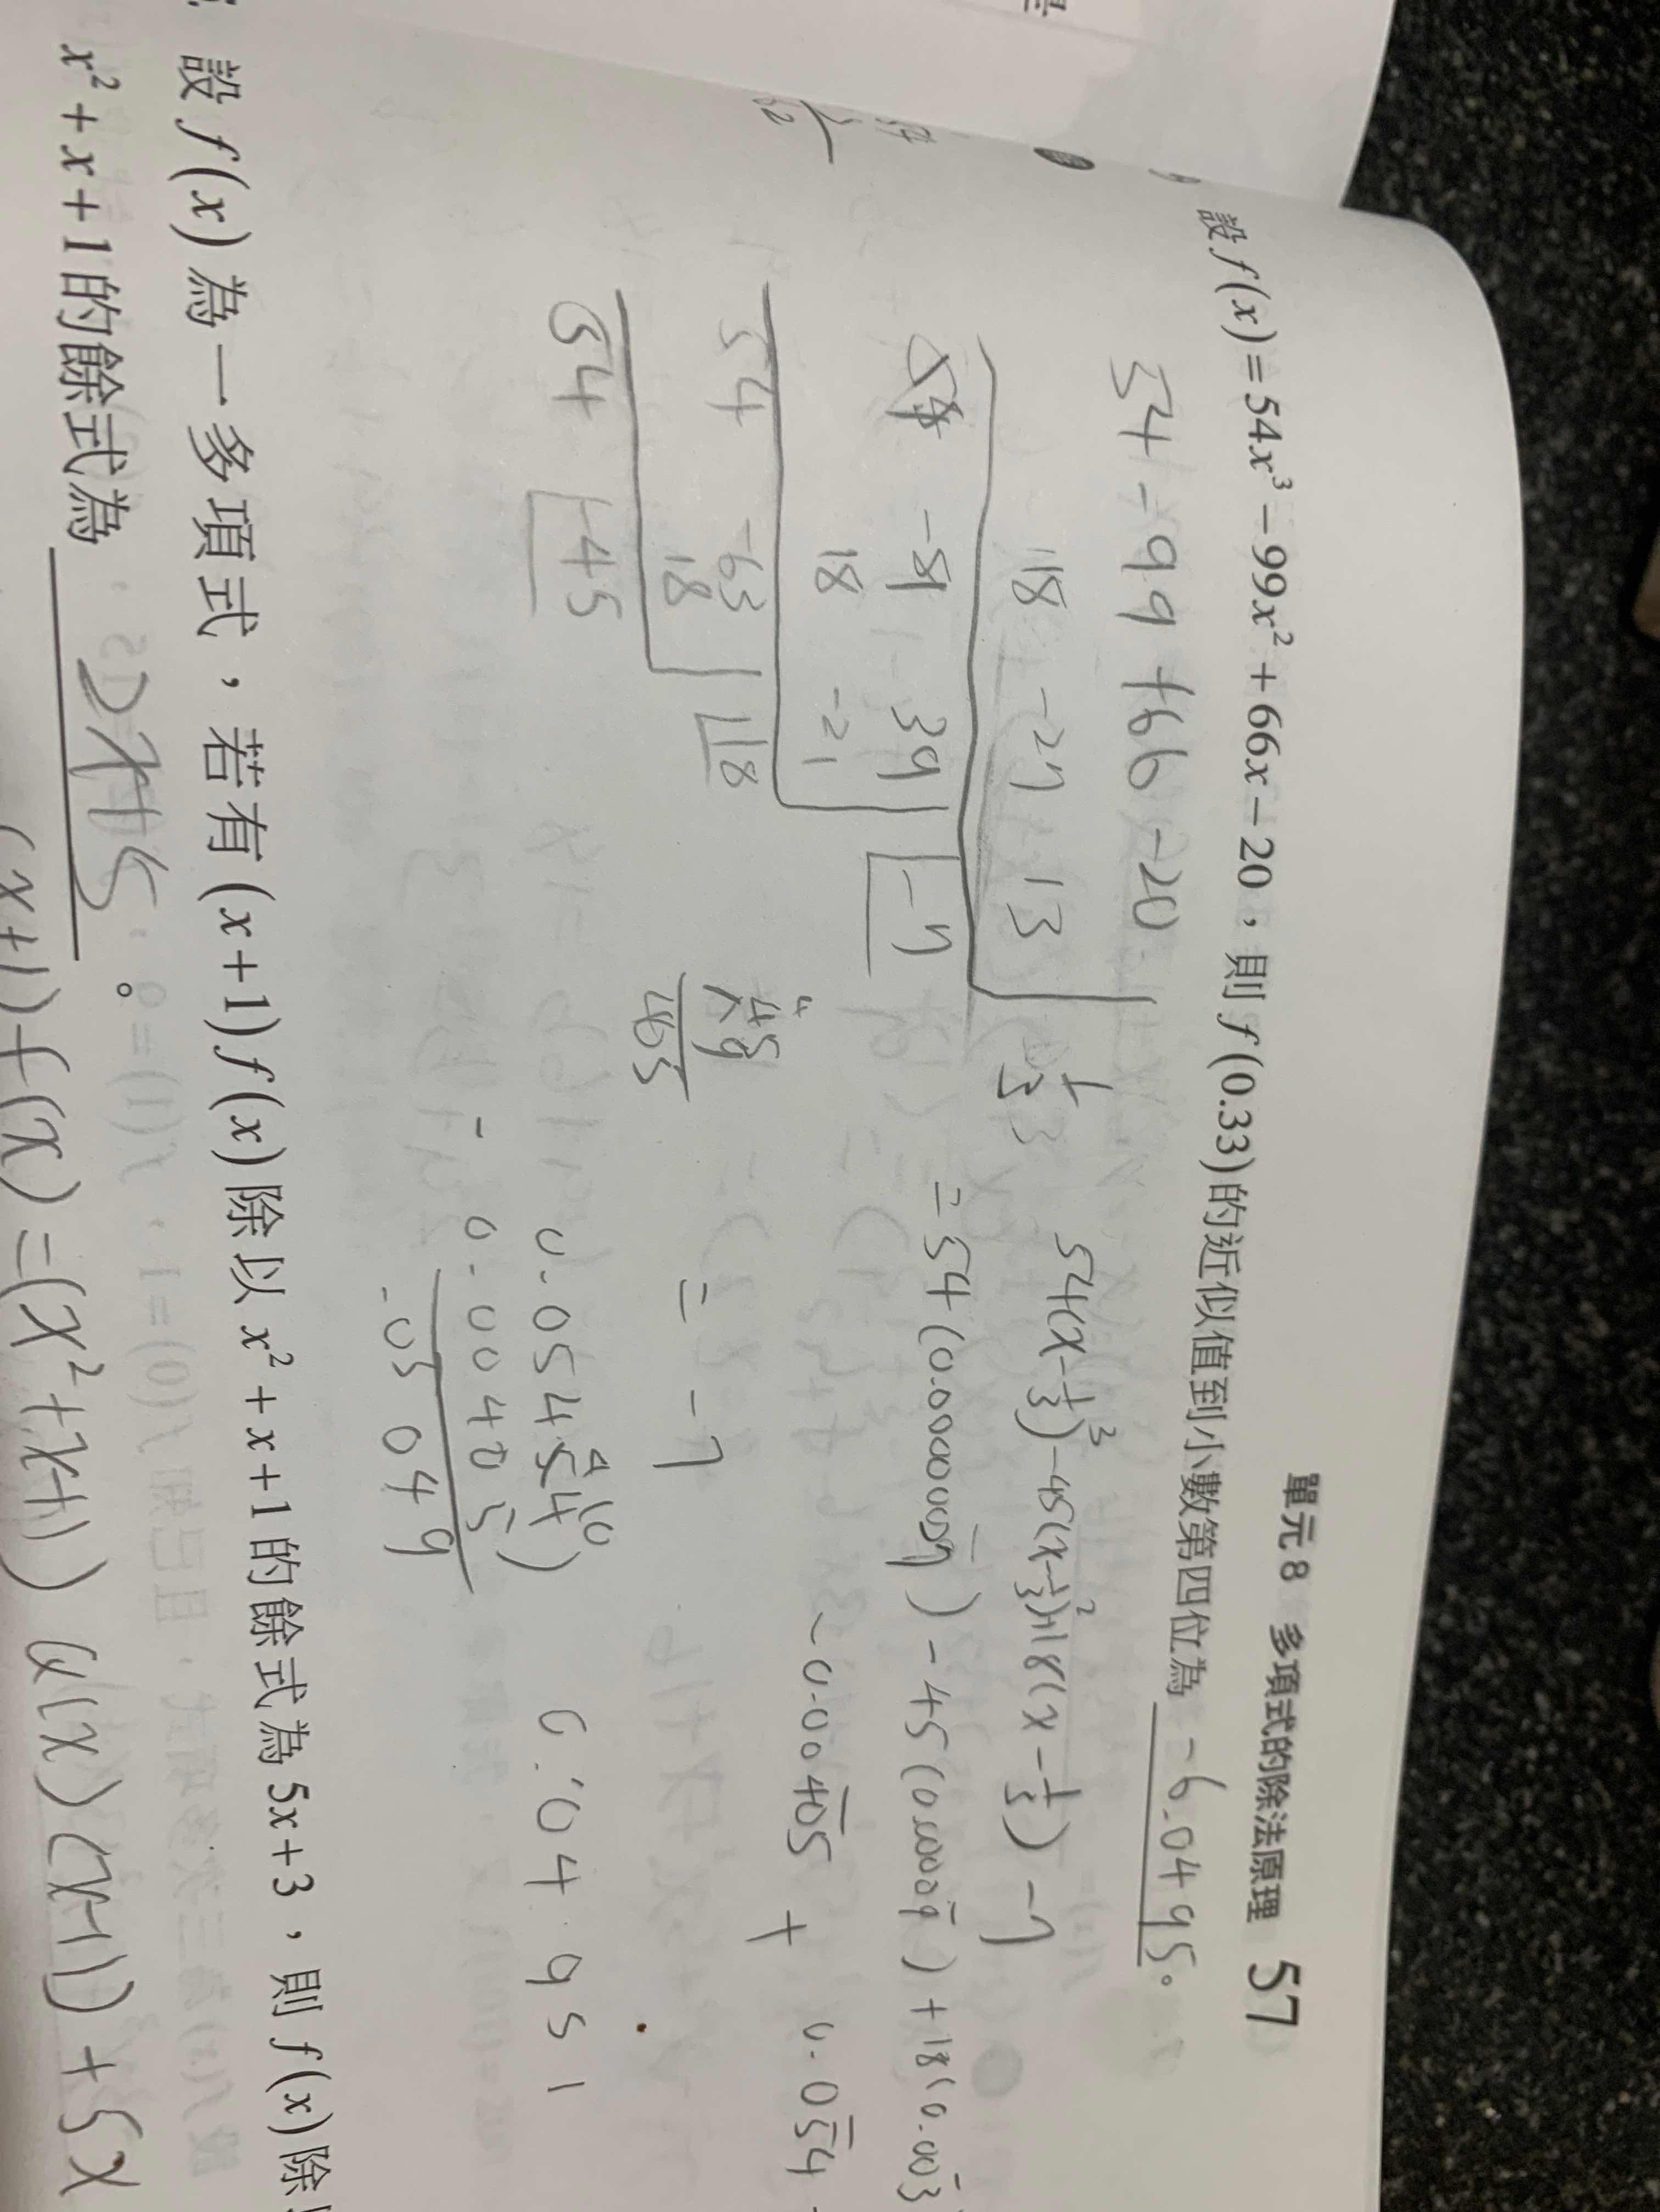 單元 8 多項式的除法原理 57
設 f(x)=54x³−99x²+66x−20，則 f(0.33)的近似值到小數第四位為 -6.0495。
54 -99 +66 -20
18 -27 13
1/3
-81 39 -7
18 -21
54 -63 18
18
54 -45
54(x-1/3)³-45(x-1/3)²+18(x-1/3)-7
45
×9
405
= -7
-0.00405 + 0.054
0.0454
0.00405
.0504 9
0.04951
設 f(x) 為一多項式，若有 (x+1)f(x) 除以 x²+x+1 的餘式為 5x+3，則 f(x) 除
x²+x+1 的餘式為 2x+5。
(x+1)f(x)=(x²+x+1)
+5x